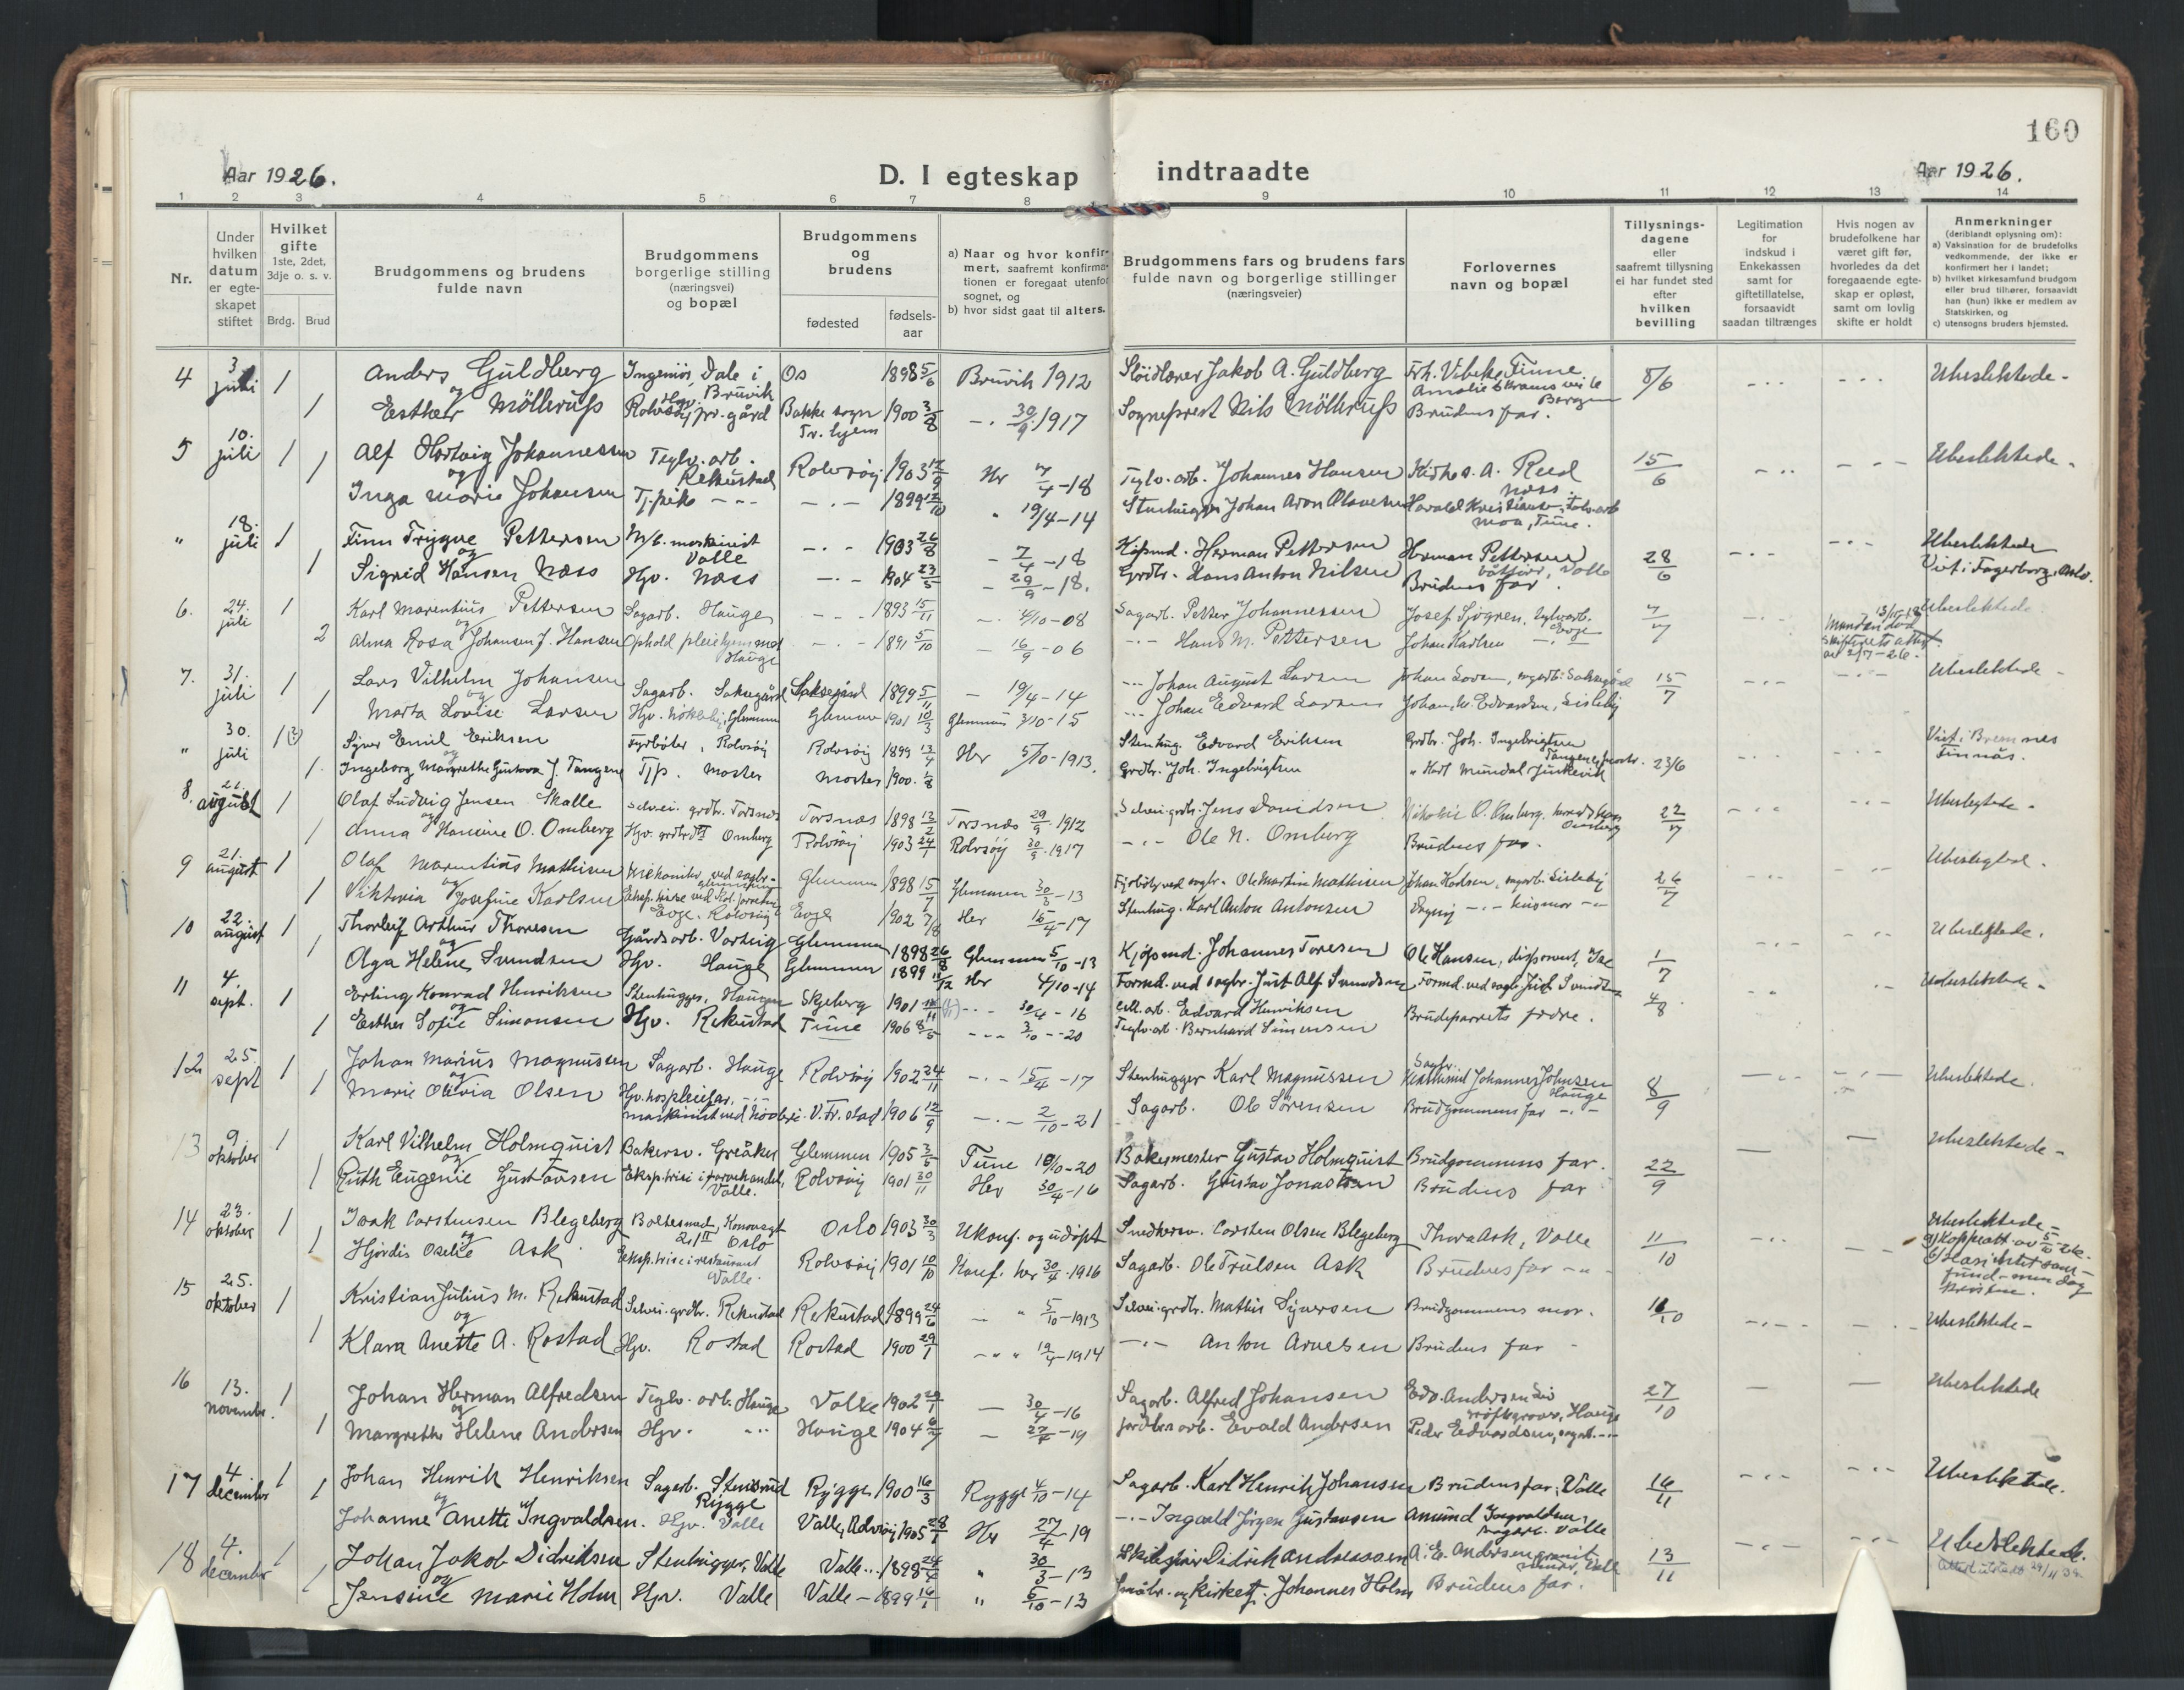 160
Aar 1926.
D. I egteskap indtraadte
Aar 1926.
1 2 3 4 5 6 7 8 9 10 11 12 13 14
Nr.
Under hvilken datum er egte-skapet stiftet
Hvilket gifte 1ste, 2det, 3dje o. s. v.
Brdg. Brud
Brudgommens og brudens fulde navn
Brudgommens borgerlige stilling (næringsvei) og bopæl
Brudgommens og brudens
fødested
fødsels-aar
a) Naar og hvor konfir-mert, saafremt konfirma-tionen er foregaat utenfor sognet, og
b) hvor sidst gaat til alters.
Brudgommens fars og brudens fars fulde navn og borgerlige stillinger (næringsveier)
Forlovernes navn og bopæl
Tillysnings-dagene eller saafremt tillysning ei har fundet sted efter hvilken bevilling
Legitimation for indskud i Enkekassen samt for giftetillatelse, forsaavidt saadan tiltrænges
Hvis nogen av brudefolkene har været gift før, hvorledes da det foregaaende egte-skap er opløst, samt om lovlig skifte er holdt
Anmerkninger (deriblandt oplysning om):
a) Vaksination for de brudefolks vedkommende, der ikke er konfirmert her i landet;
b) hvilket kirkesamfund brudgom eller brud tilhører, forsaavidt han (hun) ikke er medlem av Statskirken, og
c) utensogns bruders hjemsted.
4 3. juli 1 Anders Guldberg Ingeniør, Dale i Bruvik Os 1898 5/6 Bruvik 1912 Sløidlærer Jakob A. Guldberg Frk. Vibeke Finne Bergen 8/6 Ubeslektede
og
1 Esther Möllerup Hjv. Rolvsøy pr. gård Bakke sogn Tr.hjem 1900 3/8 30/9 1917 Sogneprest Nils Möllerup Brudens far.
5 10. juli 1 Alf Hartvig Johannessen Teglv. arb. Rekustad Rolvsøy 1903 Her 7/4-18 Teglv. arb. Johannes Hansen A. Reed Næss 15/6 Ubeslektede
og
1 Inga Marie Johansen Tj.pike 1899 19/4-14 Stenhugger Johan Aron Olavesen Harald Kristiansen, Moa, Tune.
" 18. juli 1 Finn Trygve Pettersen M/b. maskinist Valle 1903 26/8 7/4-18 Kjøpmd. Herman Pettersen Herman Pettersen, Valle 28/6 Ubeslektede
og
1 Sigrid Hansen Næss Hjv. Næss 1904 23/5 29/9-18. Grdbr. Hans Anton Nilsen Brudens far. Viet i Fagerborg, Oslo.
6. 24. juli 1 Karl Marentius Pettersen Sagarb. Hauge 1893 15/11 4/10-08 Sagarb. Petter Johannessen Josef Sjögren, Evje 7/7 Ubeslektede
og
2 Alma Rosa Johansen f. Hansen Ophold pleiehjemmet Hauge 1891 5/10 16/9-06 Hans M. Pettersen Johan Karlsen Manden död
7. 31. juli 1 Lars Vilhelm Johansen Sagarb. Saksegård Saksegård 1899 5/11 19/4-14 Johan August Larsen Johan Larsen, sagarb. Saksegård 15/7 Ubeslektede
og
1 Marta Lovise Larsen Hjv. Glemmen Glemmen 1901 10/3 Glemmen 3/10-15 Johan Edvard Larsen Johan M. Edvardsen, Lisleby
" 30. juli 1 Syver Emil Eriksen Fyrböter, Rolvsöy Rolvsöy 1899 13/4 Her 5/10-1913. Stenhug. Edvard Eriksen Grdbr. Joh. Ingebrigtsen Viet i Bremnes Finnås.
og
1. Ingeborg Margrethe f. Tangene Tjp. Moster Moster 1900 1/8 Grdbr. Joh. Ingebrigtsen Karl Mundal 23/6
8. 21. august 1 Olaf Ludvig Jensen Skalle Selvei. grdbr. Torsnæs Torsnæs 1898 13/2 Torsnæs 29/9 1912 Selvei. grdbr. Jens Davidsen Nikolai O. Omberg, Omberg 22/7 Ubeslegtede
og
1 Anna Hansine O. Omberg Hjv. Omberg Rolvsöy 1903 24/1 Rolvsöy 30/9 1917 Ole N. Omberg Brudens far.
9 21. august 1 Olaf Marentius Mathisen Mekaniker ved sagbr. Glemmen Glemmen 1898 15/7 Glemmen 30/3-13 Fyrböter ved sagbr. Ole Martin Mathisen Johan Karlsen, sagarb. Lisleby 26/7 Ubeslegtede.
og
1 Viktoria Josefine Karlsen Evje, Rolvsöy Evje 1902 7/8 Her 15/4-17 Stenhug. Karl Anton Antonsen
10 22. august 1 Thorleif Arthur Thoresen Gårdsarb. Varteig Glemmen 1898 26/8 Glemmen 5/10-13 Kjöpmd. Johannes Toresen Ole Hansen, disponent 1/7 Ubeslegtede.
og
1 Olga Heline Svendsen Hjv. Hauge Glemmen 1899 Her 4/10-14 Formd. ved sagbr. Just Alf Svendsen Formd. ved sagbr. Just Svendsen
11 4. sept. 1 Erling Konrad Henriksen Stenhugger, Haugen Skjeberg 1901 30/4-16 Edvard Henriksen Brudeparrets fedre. 4/8 Ubeslektede
og
1 Esther Sofie Simonsen Hjv. Rekustad Tune 1906 8/5 3/10-20 Teglv. arb. Bernhard Simensen
12 25. sept 1 Johan Marius Magnussen Sagarb. Hauge Rolvsöy 1902 24/11 15/4-17 Stenhugger Karl Magnussen Johannes Johnsen Hauge 8/9 Ubeslektede.
og
1 Marie Olivia Olsen Hjv. hos pleiefar, 1906 12/9 2/10-21 Sagarb. Ole Sörensen Brudgommens far
13 9. oktober 1 Karl Vilhelm Holmquist Bakersv. Greåker Glemmen 1905 3/5 Tune 10/10-20 Bakermester Gustav Holmquist Brudgommens far. 22/9 Ubeslektede
og
1 Ruth Eugenie Gustavsen Eksp.trise i farvehandel, Valle. Rolvsöy 1901 30/11 Her 30/4-16 Sagarb. Gustav Jonassen Brudens far
14 23. oktober 1 Isak Carstensen Blegeberg Oslo Oslo 1903 30/3 Ukonf. og udöpt Snedkersv. Carsten Olsen Blegeberg Thora Ask, Valle 11/10 Ubeslektede
og
1 Hjördis Oselie Ask Eksp.trise i restaurant Valle. Rolvsöy 1901 10/10 Konf. her 30/4-1916 Sagarb. Ole Trulsen Ask Brudens far
15 25. oktober 1 Kristian Julius M. Rekustad Selvei. grdbr. Rekustad Rekustad 1899 24/6 5/10-1913 Selvei. grdbr. Mathis Syversen Brudgommens mor. Ubeslektede
og
1 Klara Anette A. Rostad Hjv. Rostad Rostad 1900 29/1 19/4-1914 Anton Arvesen Brudens far
16 13. november. 1 Johan Herman Alfredsen Teglv. arb. Hauge Valle 1902 30/4-16 Sagarb. Alfred Johansen Edv. Andersen Lie, Hauge 27/10 Ubeslektede
og
1 Margrethe Helene Andersen Hjv. Hauge 1904 27/4-19 Evald Andersen Peder Edvardsen
17 4. december 1 Johan Henrik Henriksen Sagarb. Stensrud Rygge Rygge 1900 16/3 Rygge 4/10-14 Sagarb. Karl Henrik Johansen Brudens far, Valle 16/11 Ubeslektede.
og
1 Johanne Anette Ingvaldsen. Hjv. Valle Valle, Rolvsöy 1905 28/1 Her 27/4-19 Ingvald Jörgen Gustavsen Amund Ingvaldsen, sagarb. Valle
18 4. december 1 Johan Jakob Didriksen Stenhugger, Valle Valle 1898 24/4 30/3-13 Didrik Andreassen A. E. Andersen, Valle 13/11 Ubeslektede.
og
1 Jensine Marie Holm Hjv. Valle Valle 1899 5/10-13 Johannes Holm Brudens far.